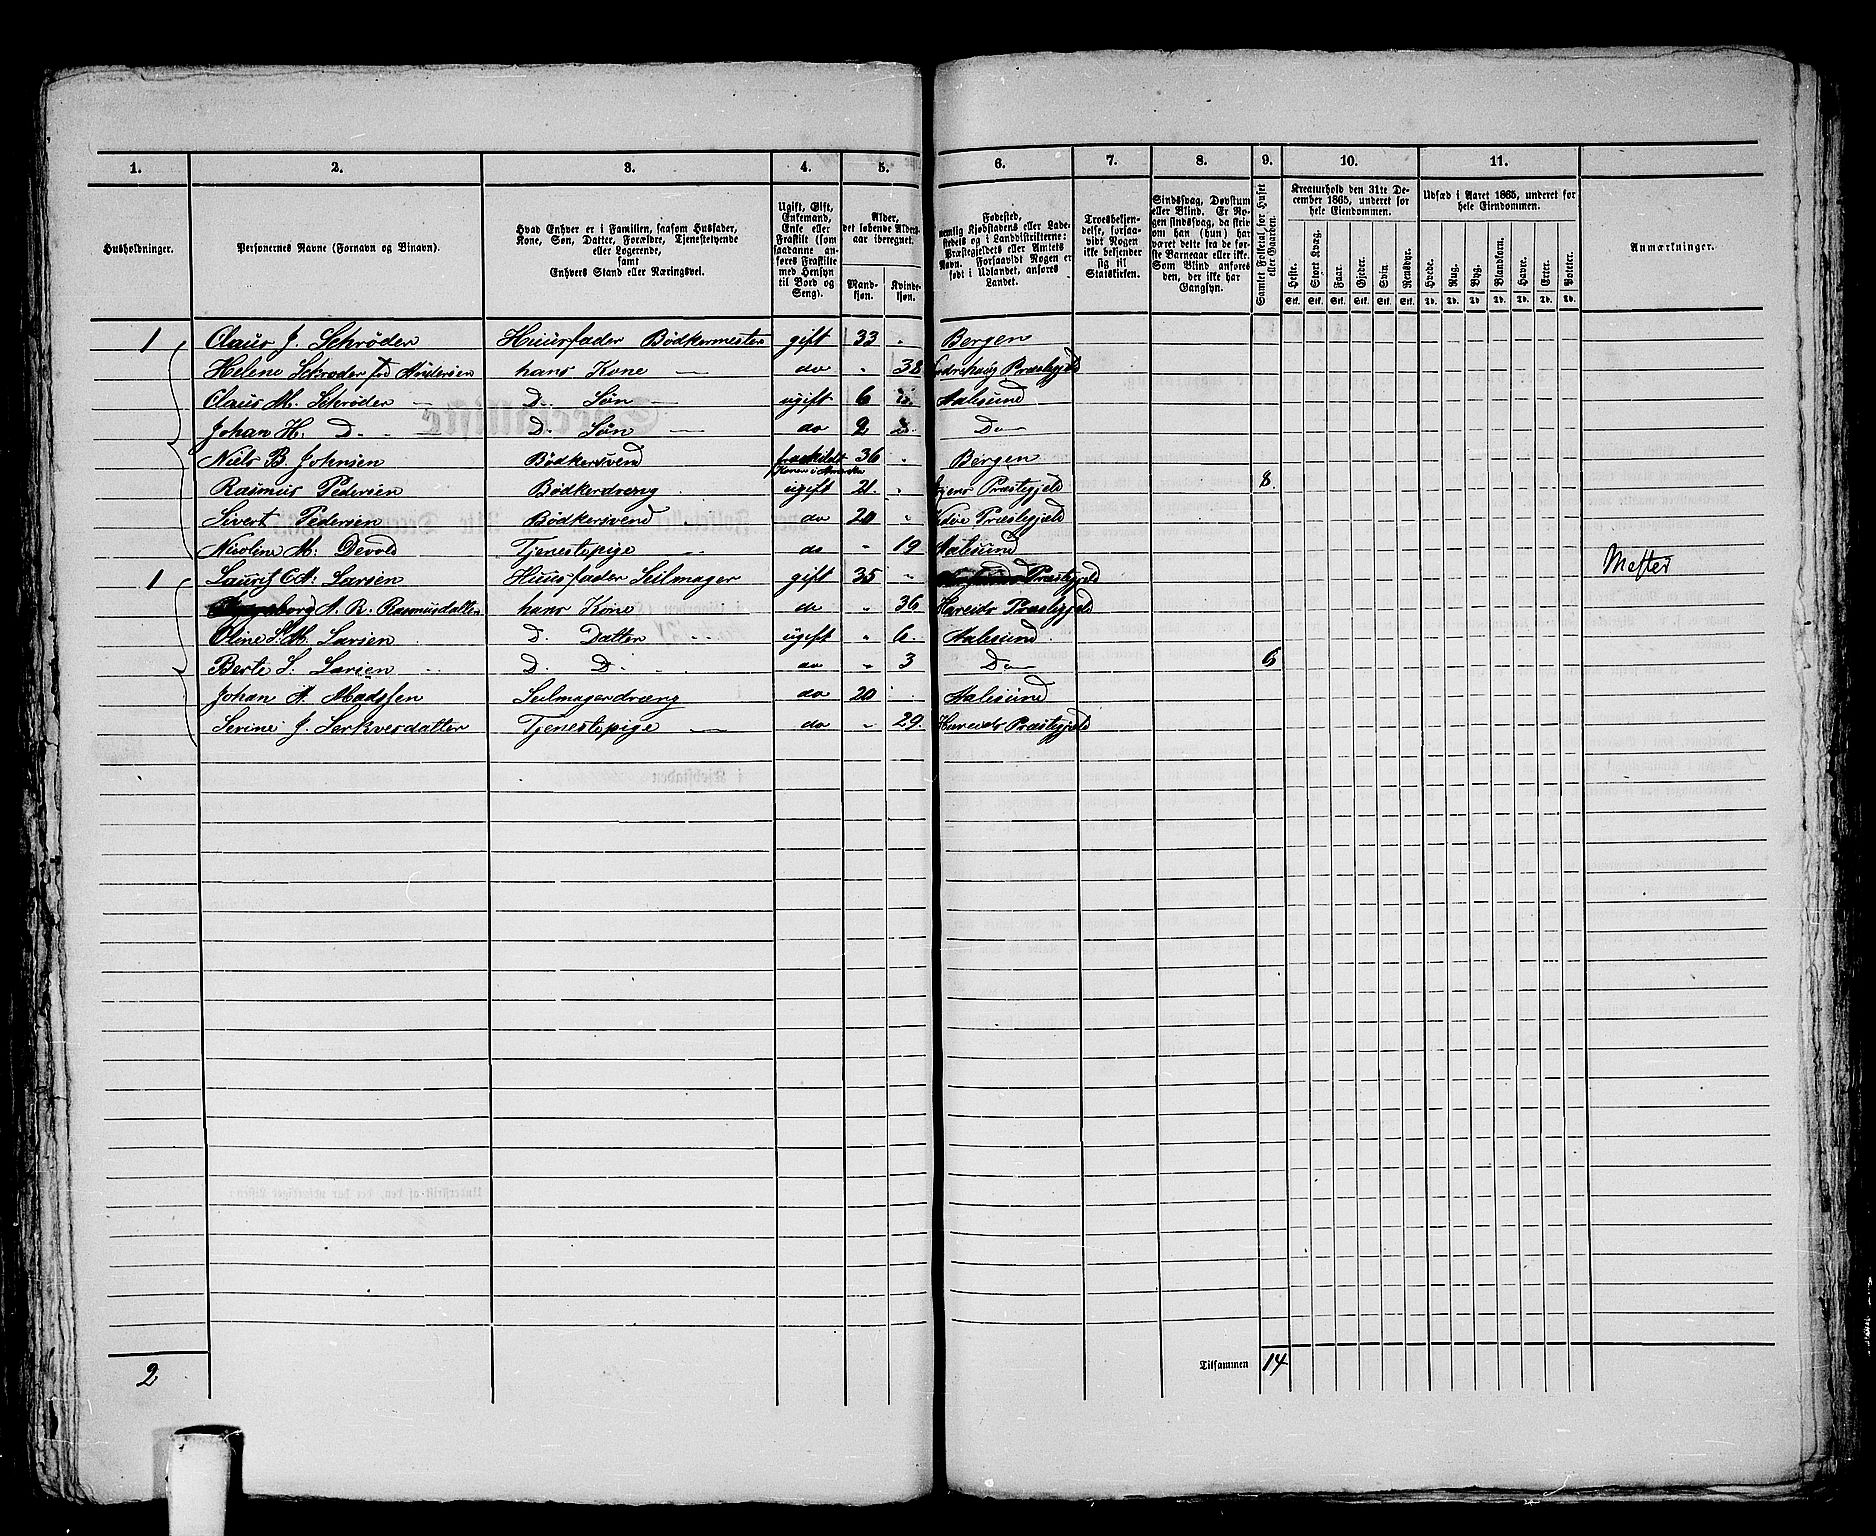 1. 2. 3. 4. 5. 6. 7. 8. 9. 10. 11.
Husholdninger.
Personernes Navne (Fornavn og Binavn).
Hvad Enhver er i Familien, saasom Husfader,
Kone, Søn, Datter, Forældre, Tjenestetyende
eller Logerende,
samt
Enhvers Stand eller Næringsvei.
Ugift, Gift,
Enkemand,
Enke eller
Fraskilt (som
saadanne an-
føres Fraskilte
med Hensyn
til Bord og
Seng).
Alder,
det løbende Alders-
aar iberegnet.
Mand-
kjøn.
Kvinde-
kjøn.
Fødested,
nemlig Kjøbstadens eller Lade-
stedets og i Landdistrikterne:
Præstegjeldets eller Amtets
Navn. Forsaavidt Nogen er
født i Udlandet, anføres
Landet.
Troesbekjen-
delse, forsaa-
vidt Nogen
ikke bekjender
sig til
Statskirken.
Sindssvag, Døvstum
eller Blind. Er No-
gen sindssvag, da skriv
om han (hun) har
været dette fra de før-
ste Barneaar eller ikke.
Som Blind anføres
den, der ikke har
Gangsyn.
Samlet Folketal for Huset
eller Gaarden.
Kreaturhold den 31te De-
cember 1865, underet for
hele Eiendommen.
Heste. Stort Kvæg. Faar. Gjeder. Svin. Rensdyr.
Stk. Stk. Stk. Stk. Stk. Stk.
Udsæd i Aaret 1865, underet for
hele Eiendommen.
Hvede. Rug. Byg. Blandkorn. Havre. Erter. Poteter.
Td. Td. Td. Td. Td. Td. Td.
Anmærkninger.
1 Claus J. Schrøder Huusfader Bødkermester gift 33 " Bergen
Helene Schrøder fød Andersen hans Kone — do " 38 Præstegjeld
Claus M. Schrøder — D. Søn — ugift 6 " Aalesund
Johan H. D. — D. Søn — do 2 " Do —
Niels B. Johnsen Bødkersvend fraskildt 36 " Bergen
Konen i Amerika
Rasmus Pedersen Bødkerdreng ugift 21. " Præstegjeld 8.
Sivert Pedersen Bødkersvend do 20 " Præstegjeld
Nicoline M. Devold Tjenestepige do " 19 Aalesund
1 Laurits A. Larsen Huusfader Seilmager gift 35 " Præstegjeld Mester
A. R. Rasmusdatter hans Kone do " 36 Hareids Præstegjeld
Oline S. M. Larsen D. Datter ugift " 6. Aalesund
Berte S. Larsen D. D. do " 3 Do — 6
Johan A. Madssen Seilmagerdræng do 20 " Aalesund
Serine J. Serkvesdatter Tjenestepige — do " 29. Hareids Præstegjeld
2 Tilsammen 14